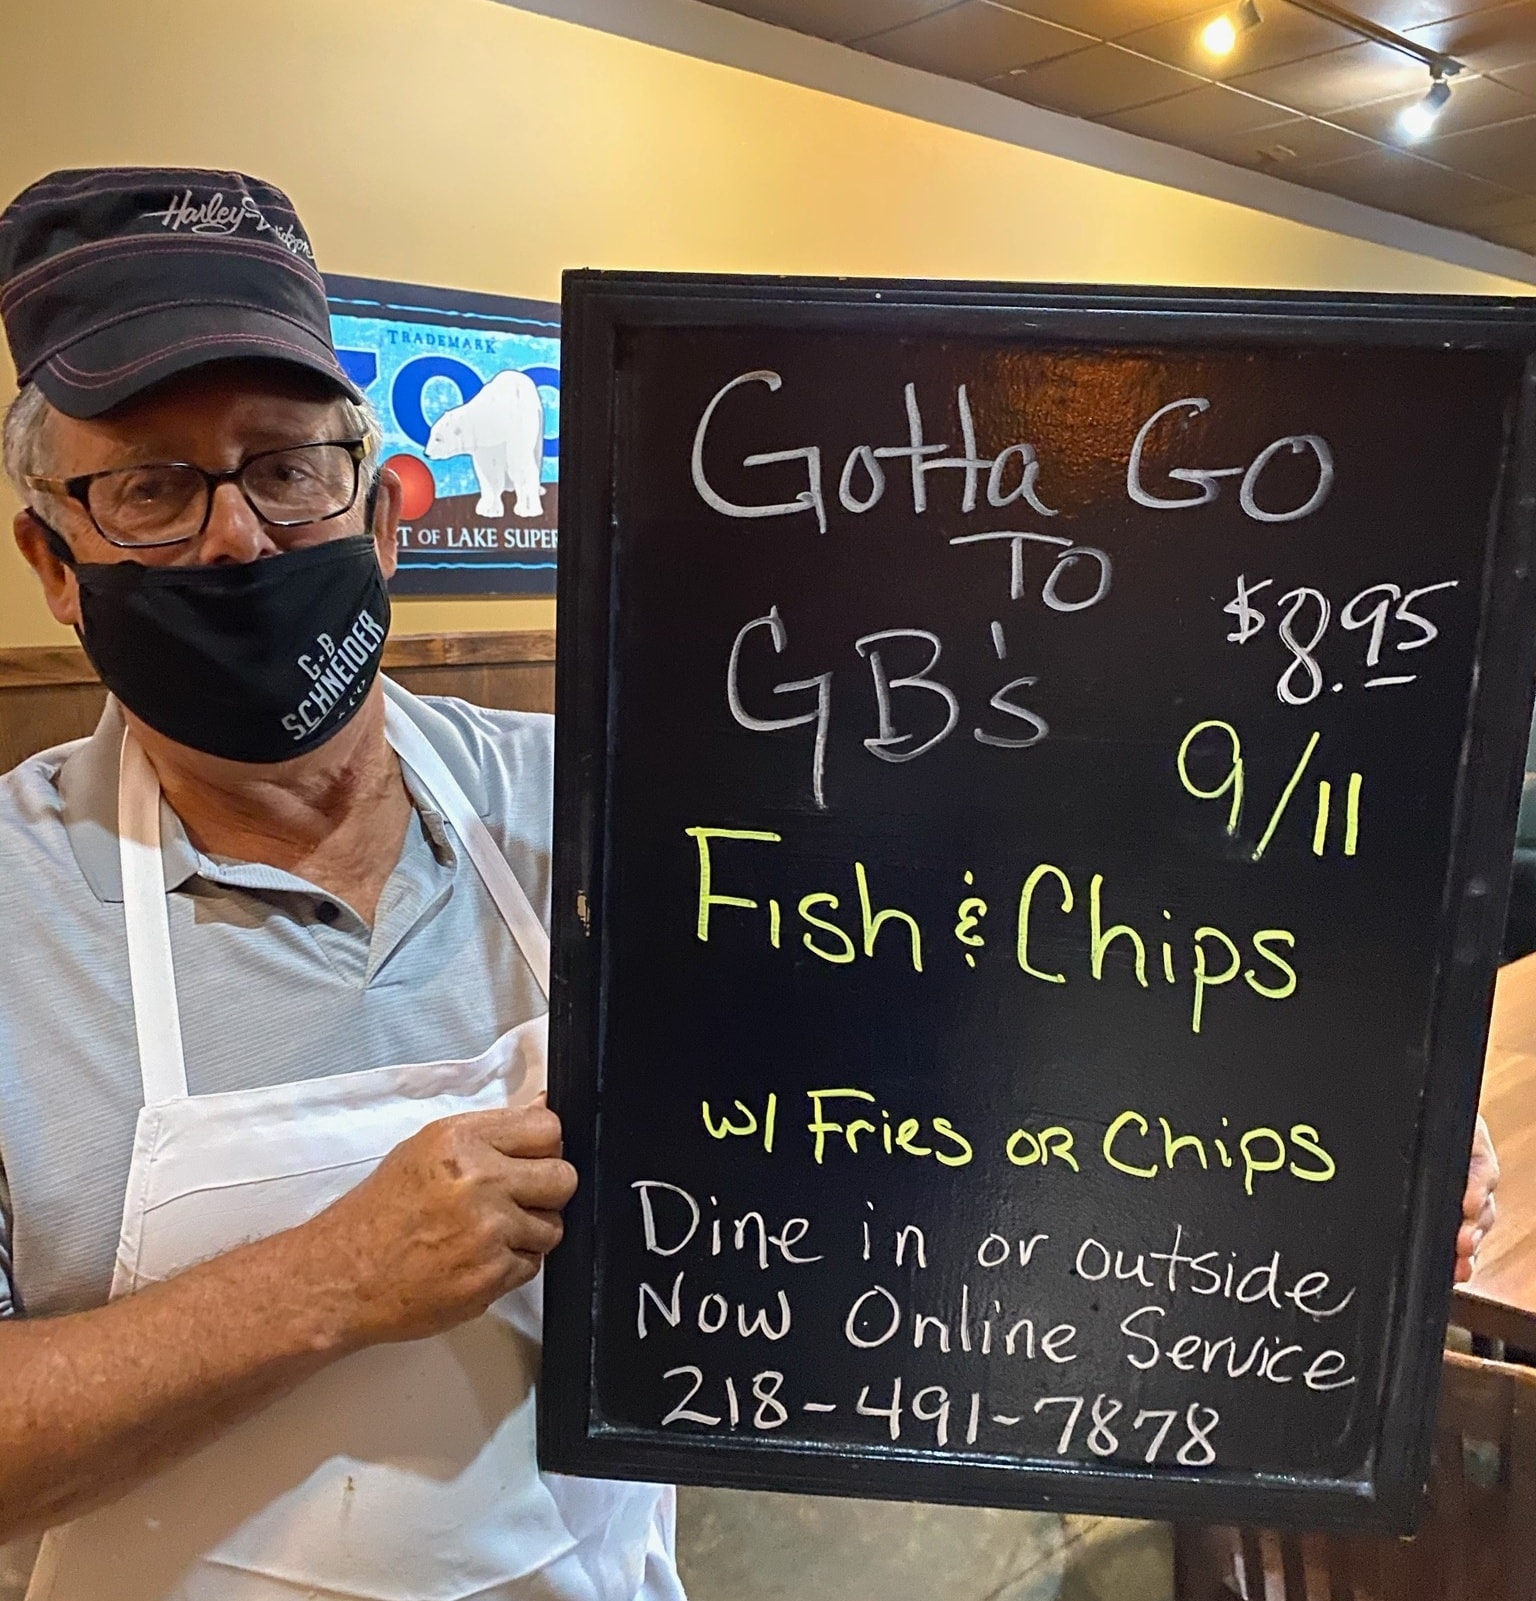 Harley-Davidson
TRADEMARK
OF LAKE
G·B
SCHNEIDER
& CO
Gotta Go
TO
GB's
$8.95
9/11
Fish & Chips
w/ Fries OR Chips
Dine in or outside
Now Online Service
218-491-7878